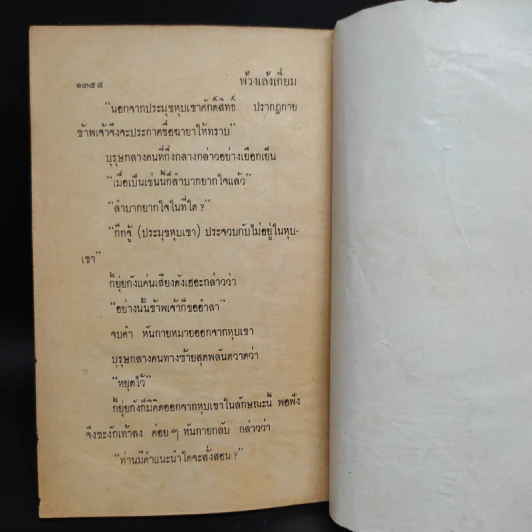 ๑๓๕๔ พ้วงเล้งเกี่ยม
“นอกจากประมุขหุบเขาศักดิ์สิทธิ์ ปรากฏกาย
ข้าพเจ้าจึงจะประกาศชื่อฉายาให้ทราบ”
บุรุษกลางคนที่กึ่งกลางกล่าวอย่างเยือกเย็น
“เมื่อเป็นเช่นนี้ก็ลำบากยากใจแล้ว”
“ลำบากยากใจในที่ใด ?”
“ก๊กจู้ (ประมุขหุบเขา) ประจวบกับไม่อยู่ในหุบ-
เขา”
ก็ยุ่ยกังแค่นเสียงดังเฮอะกล่าวว่า
“อย่างนั้นข้าพเจ้าก็ขออำลา”
จบคำ หันกายหมายออกจากหุบเขา
บุรุษกลางคนทางซ้ายสุดพลันตวาดว่า
“หยุดไว้”
ก็ยุ่ยกังก็มิคิดออกจากหุบเขาในลักษณะนี้ พอฟัง
จึงชะงักเท้าลง ค่อย ๆ หันกายกลับ กล่าวว่า
“ท่านมีคำแนะนำใดจะสั่งสอน ?”